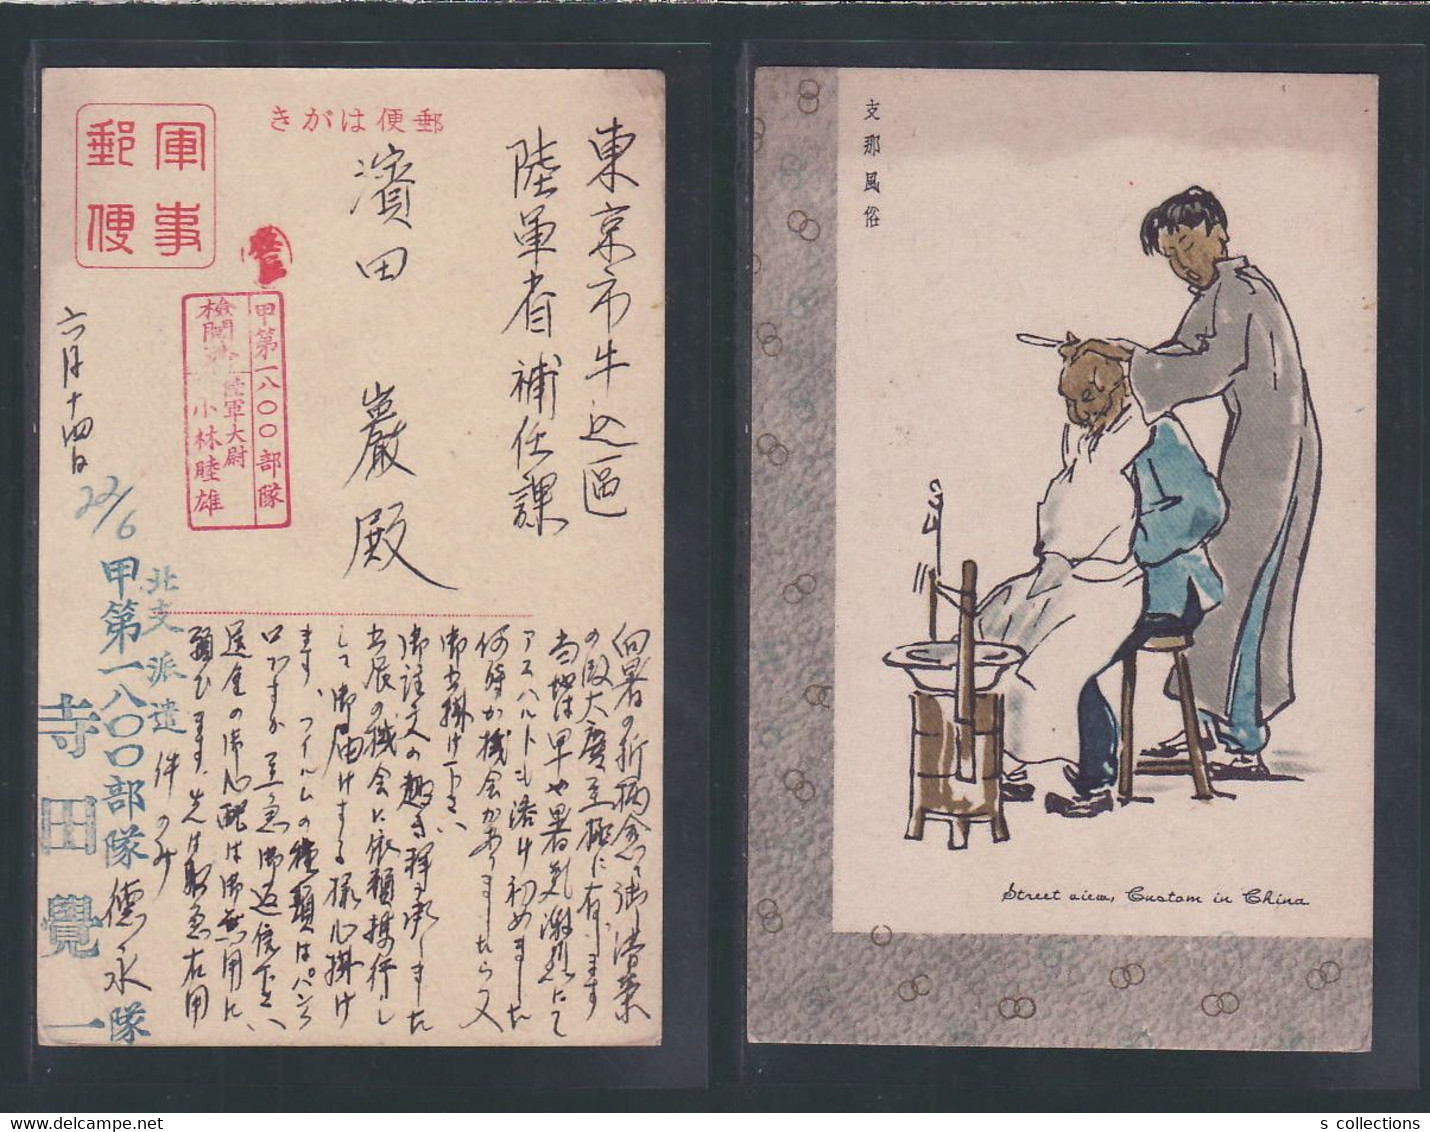 郵便はがき
軍事
郵便
東京市牛込區
陸軍省補任課
濱田 巖 殿
甲第一八〇〇部隊
検閲濟 陸軍大尉
小林睦雄
六月十四日
22/6
北支派遣
甲第一八〇〇部隊 德永隊
寺田覺一
向暑の折柄愈〻御清榮
の段大慶至極に存じます
当地は早や暑気激烈にて
アスハルトも溶け初めました
何時か機会がありましたら又
御出掛け下さい
御註文の趣き拝承しました
出辰の機会に依頼携行し
して御届けする様心掛け
ます、フイルムの種類はパンクロ
ですか至急御返信下さい
送金の御心配は御無用に
願ひます、先は取急右用
件のみ
支那風俗
Street view, Custom in China
s collections